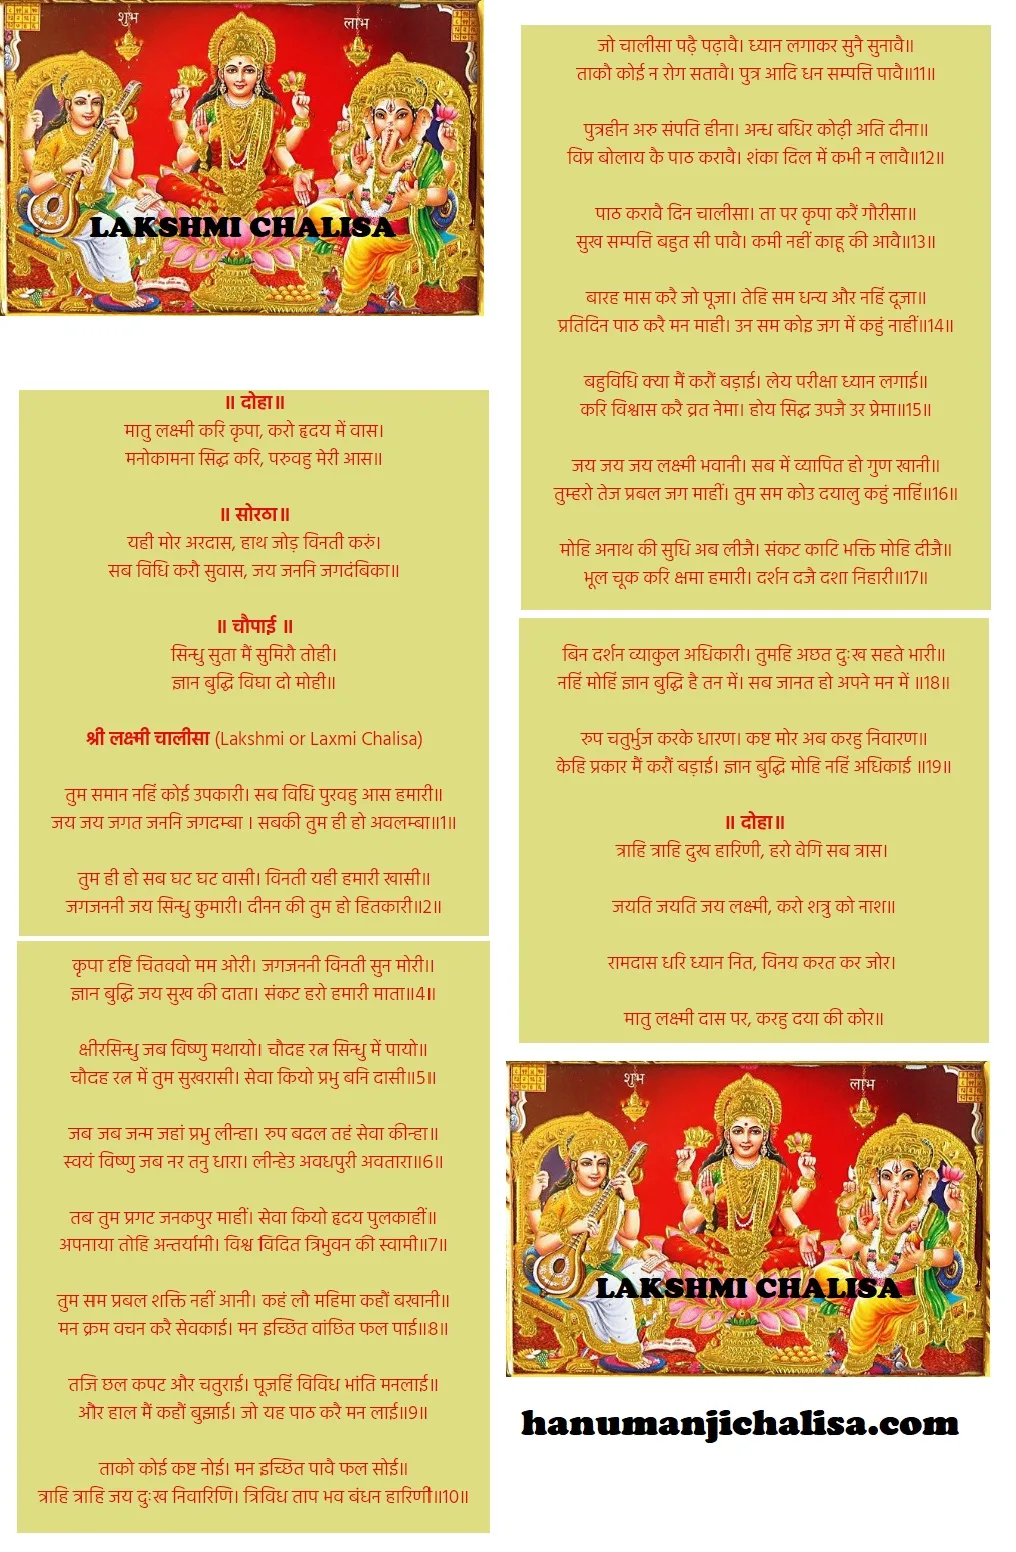 शुभ
लाभ
LAKSHMI CHALISA
॥ दोहा॥
मातु लक्ष्मी करि कृपा, करो हृदय में वास।
मनोकामना सिद्ध करि, परुवहु मेरी आस॥
॥ सोरठा॥
यही मोर अरदास, हाथ जोड़ विनती करुं।
सब विधि करौ सुवास, जय जननि जगदंबिका॥
॥ चौपाई ॥
सिन्धु सुता मैं सुमिरौ तोही।
ज्ञान बुद्धि विघा दो मोही॥
श्री लक्ष्मी चालीसा (Lakshmi or Laxmi Chalisa)
तुम समान नहिं कोई उपकारी। सब विधि पुरवहु आस हमारी॥
जय जय जगत जननि जगदम्बा । सबकी तुम ही हो अवलम्बा॥1॥
तुम ही हो सब घट घट वासी। विनती यही हमारी खासी॥
जगजननी जय सिन्धु कुमारी। दीनन की तुम हो हितकारी॥2॥
कृपा दृष्टि चितववो मम ओरी। जगजननी विनती सुन मोरी।।
ज्ञान बुद्धि जय सुख की दाता। संकट हरो हमारी माता॥4॥
क्षीरसिन्धु जब विष्णु मथायो। चौदह रत्न सिन्धु में पायो॥
चौदह रत्न में तुम सुखरासी। सेवा कियो प्रभु बनि दासी॥5॥
जब जब जन्म जहां प्रभु लीन्हा। रुप बदल तहं सेवा कीन्हा॥
स्वयं विष्णु जब नर तनु धारा। लीन्हेउ अवधपुरी अवतारा॥6॥
तब तुम प्रगट जनकपुर माहीं। सेवा कियो हृदय पुलकाहीं॥
अपनाया तोहि अन्तर्यामी। विश्व विदित त्रिभुवन की स्वामी॥7॥
तुम सम प्रबल शक्ति नहीं आनी। कहं लौ महिमा कहौं बखानी॥
मन क्रम वचन करै सेवकाई। मन इच्छित वांछित फल पाई॥8॥
तजि छल कपट और चतुराई। पूजहिं विविध भांति मनलाई॥
और हाल मैं कहौं बुझाई। जो यह पाठ करै मन लाई॥9॥
ताको कोई कष्ट नोई। मन इच्छित पावै फल सोई॥
त्राहि त्राहि जय दुःख निवारिणि। त्रिविध ताप भव बंधन हारिणी॥10॥
जो चालीसा पढ़ै पढ़ावै। ध्यान लगाकर सुनै सुनावै॥
ताकौ कोई न रोग सतावै। पुत्र आदि धन सम्पत्ति पावै॥11॥
पुत्रहीन अरु संपति हीना। अन्ध बधिर कोढ़ी अति दीना॥
विप्र बोलाय कै पाठ करावै। शंका दिल में कभी न लावै॥12॥
पाठ करावै दिन चालीसा। ता पर कृपा करैं गौरीसा॥
सुख सम्पत्ति बहुत सी पावै। कमी नहीं काहू की आवै॥13॥
बारह मास करै जो पूजा। तेहि सम धन्य और नहिं दूजा॥
प्रतिदिन पाठ करै मन माही। उन सम कोइ जग में कहुं नाहीं॥14॥
बहुविधि क्या मैं करौं बड़ाई। लेय परीक्षा ध्यान लगाई॥
करि विश्वास करै व्रत नेमा। होय सिद्ध उपजै उर प्रेमा॥15॥
जय जय जय लक्ष्मी भवानी। सब में व्यापित हो गुण खानी॥
तुम्हरो तेज प्रबल जग माहीं। तुम सम कोउ दयालु कहुं नाहिं॥16॥
मोहि अनाथ की सुधि अब लीजै। संकट काटि भक्ति मोहि दीजै॥
भूल चूक करि क्षमा हमारी। दर्शन दजै दशा निहारी॥17॥
बिन दर्शन व्याकुल अधिकारी। तुमहि अछत दुःख सहते भारी॥
नहिं मोहिं ज्ञान बुद्धि है तन में। सब जानत हो अपने मन में ॥18॥
रुप चतुर्भुज करके धारण। कष्ट मोर अब करहु निवारण॥
केहि प्रकार मैं करौं बड़ाई। ज्ञान बुद्धि मोहि नहिं अधिकाई ॥19॥
॥ दोहा॥
त्राहि त्राहि दुख हारिणी, हरो वेगि सब त्रास।
जयति जयति जय लक्ष्मी, करो शत्रु को नाश॥
रामदास धरि ध्यान नित, विनय करत कर जोर।
मातु लक्ष्मी दास पर, करहु दया की कोर॥
शुभ
लाभ
LAKSHMI CHALISA
hanumanjichalisa.com